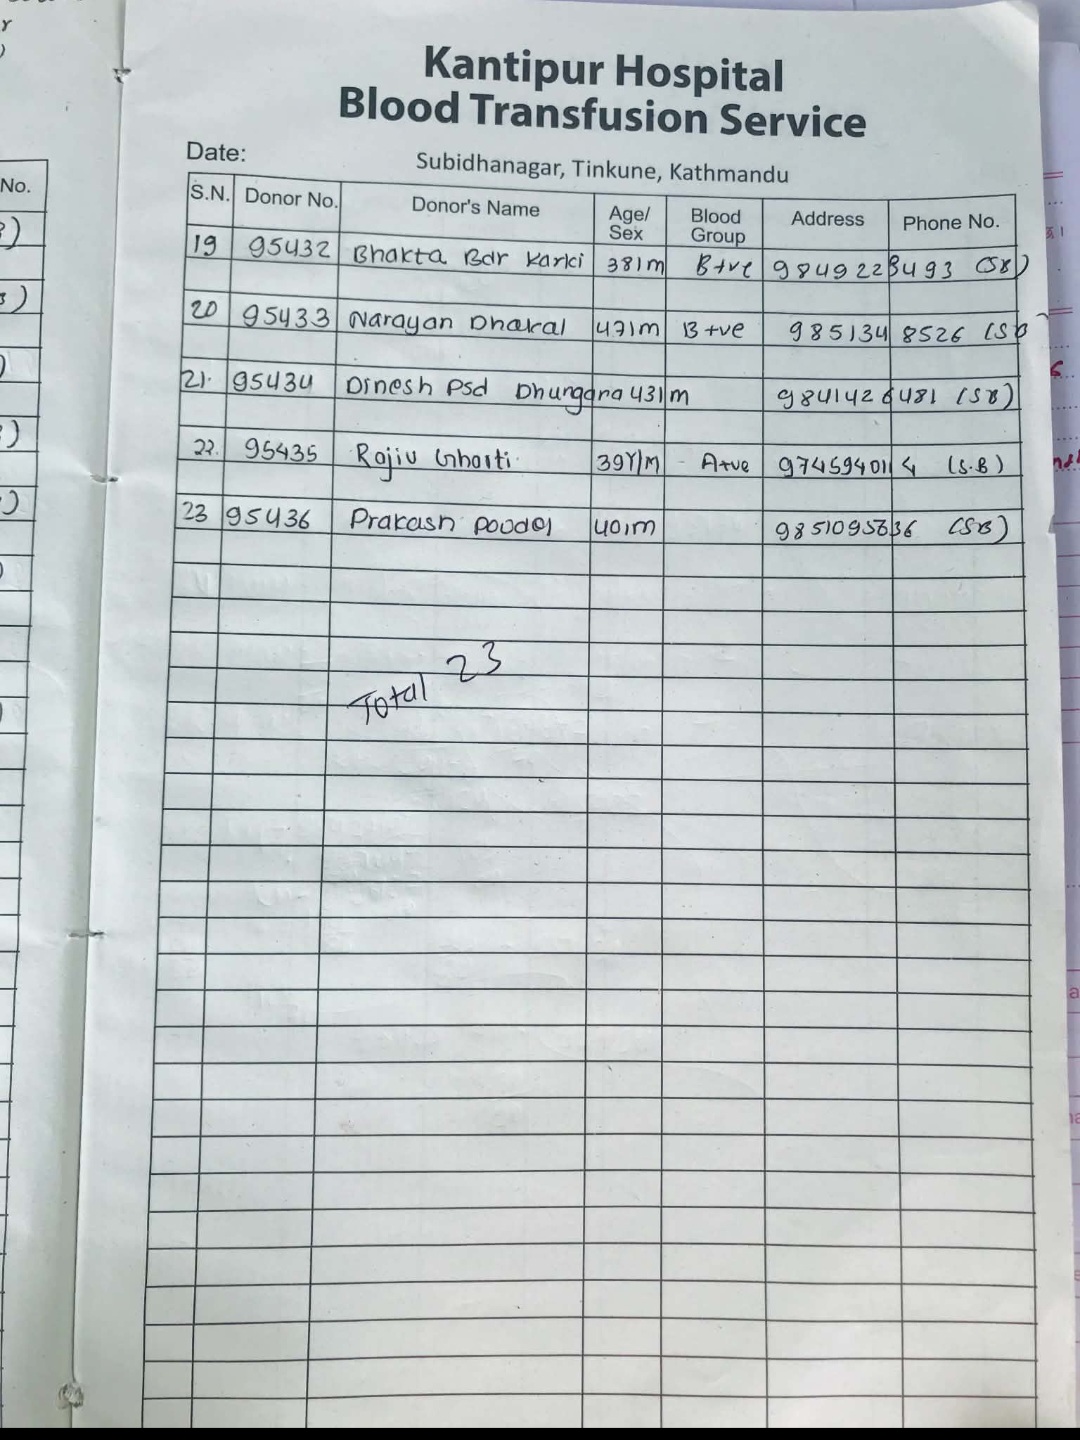 Kantipur Hospital
Blood Transfusion Service
Date:
Subidhanagar, Tinkune, Kathmandu
No.
S.N. Donor No. Donor's Name Age/ Sex Blood Group Address Phone No.
19 95432 Bhakta Bdr Karki 38/m B+ve 9849223493 (SB)
20 95433 Narayan Dhakal 47/m B+ve 9851348526 (SB
21. 95434 Dinesh Psd Dhungana 43/m 9841426481 (SB)
22. 95435 Rajiv Gharti 39Y/M A+ve 9745940114 (S.B)
23 95436 Prakash Poudel 40/m (SB)
Total 23